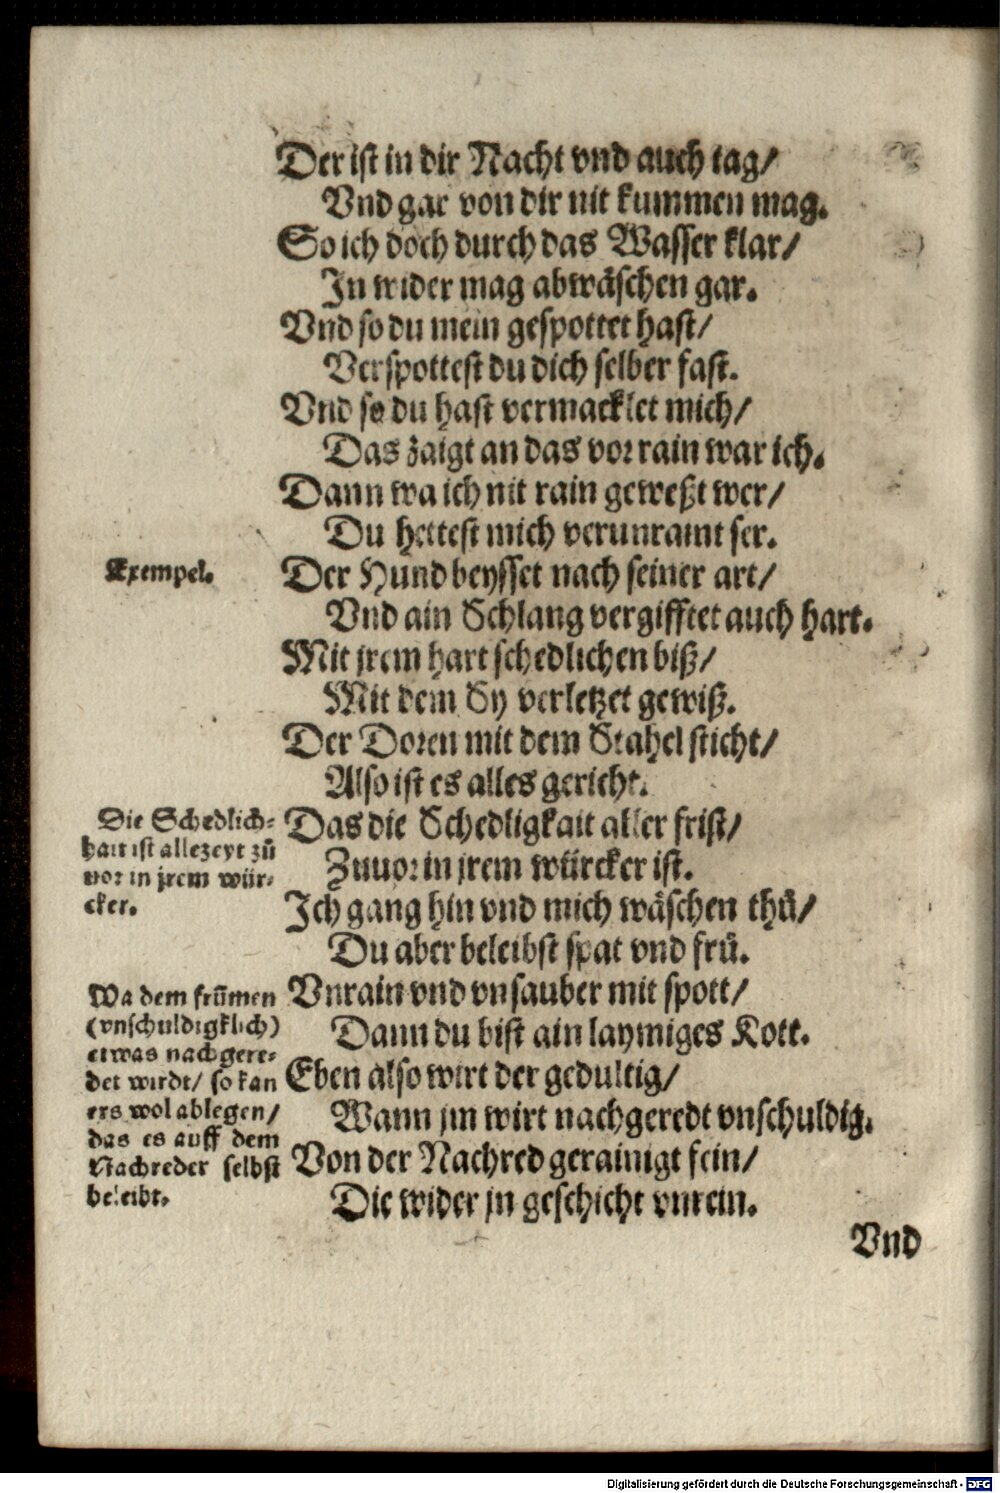 Der ist in dir Nacht vnd auch tag/
Vnd gar von dir nit kummen mag.
So ich doch durch das Wasser klar/
In wider mag abwäschen gar.
Vnd so du mein gespottet hast/
Verspottest du dich selber fast.
Vnd so du hast vermacklet mich/
Das zaigt an das vor rain war ich.
Dann wa ich nit rain geweßt wer/
Du hettest mich verunraint ser.
Exempel.
Der Hund beysset nach seiner art/
Vnd ain Schlang vergifftet auch hart.
Mit jrem hart schedlichen biß/
Mit dem Sy verletzet gewiß.
Der Doren mit dem Stahel sticht/
Also ist es alles gericht.
Die Schedlich-
hait ist allezeyt zů
vor in jrem wür-
cker.
Das die Schedligkait aller frist/
Zuuor in jrem würcker ist.
Ich gang hin vnd mich wäschen thů/
Du aber beleibst spat vnd frů.
Wa dem frůmen
(vnschuldigklich)
etwas nachgere-
det wirdt/ so kan
ers wol ablegen/
das es auff dem
Nachreder selbst
beleibt.
Vnrain vnd vnsauber mit spott/
Dann du bist ain laymiges Kott.
Eben also wirt der gedultig/
Wann jm wirt nachgeredt vnschuldig.
Von der Nachred gerainigt fein/
Die wider jn geschicht vnrein.
Vnd
Digitalisierung gefördert durch die Deutsche Forschungsgemeinschaft - DFG